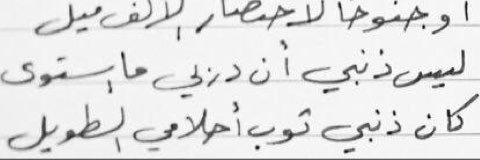 او جنوحا لاختصار الالف ميل
ليس ذنبي أن دربي ما استوى
كان ذنبي ثوب أحلامي الطويل